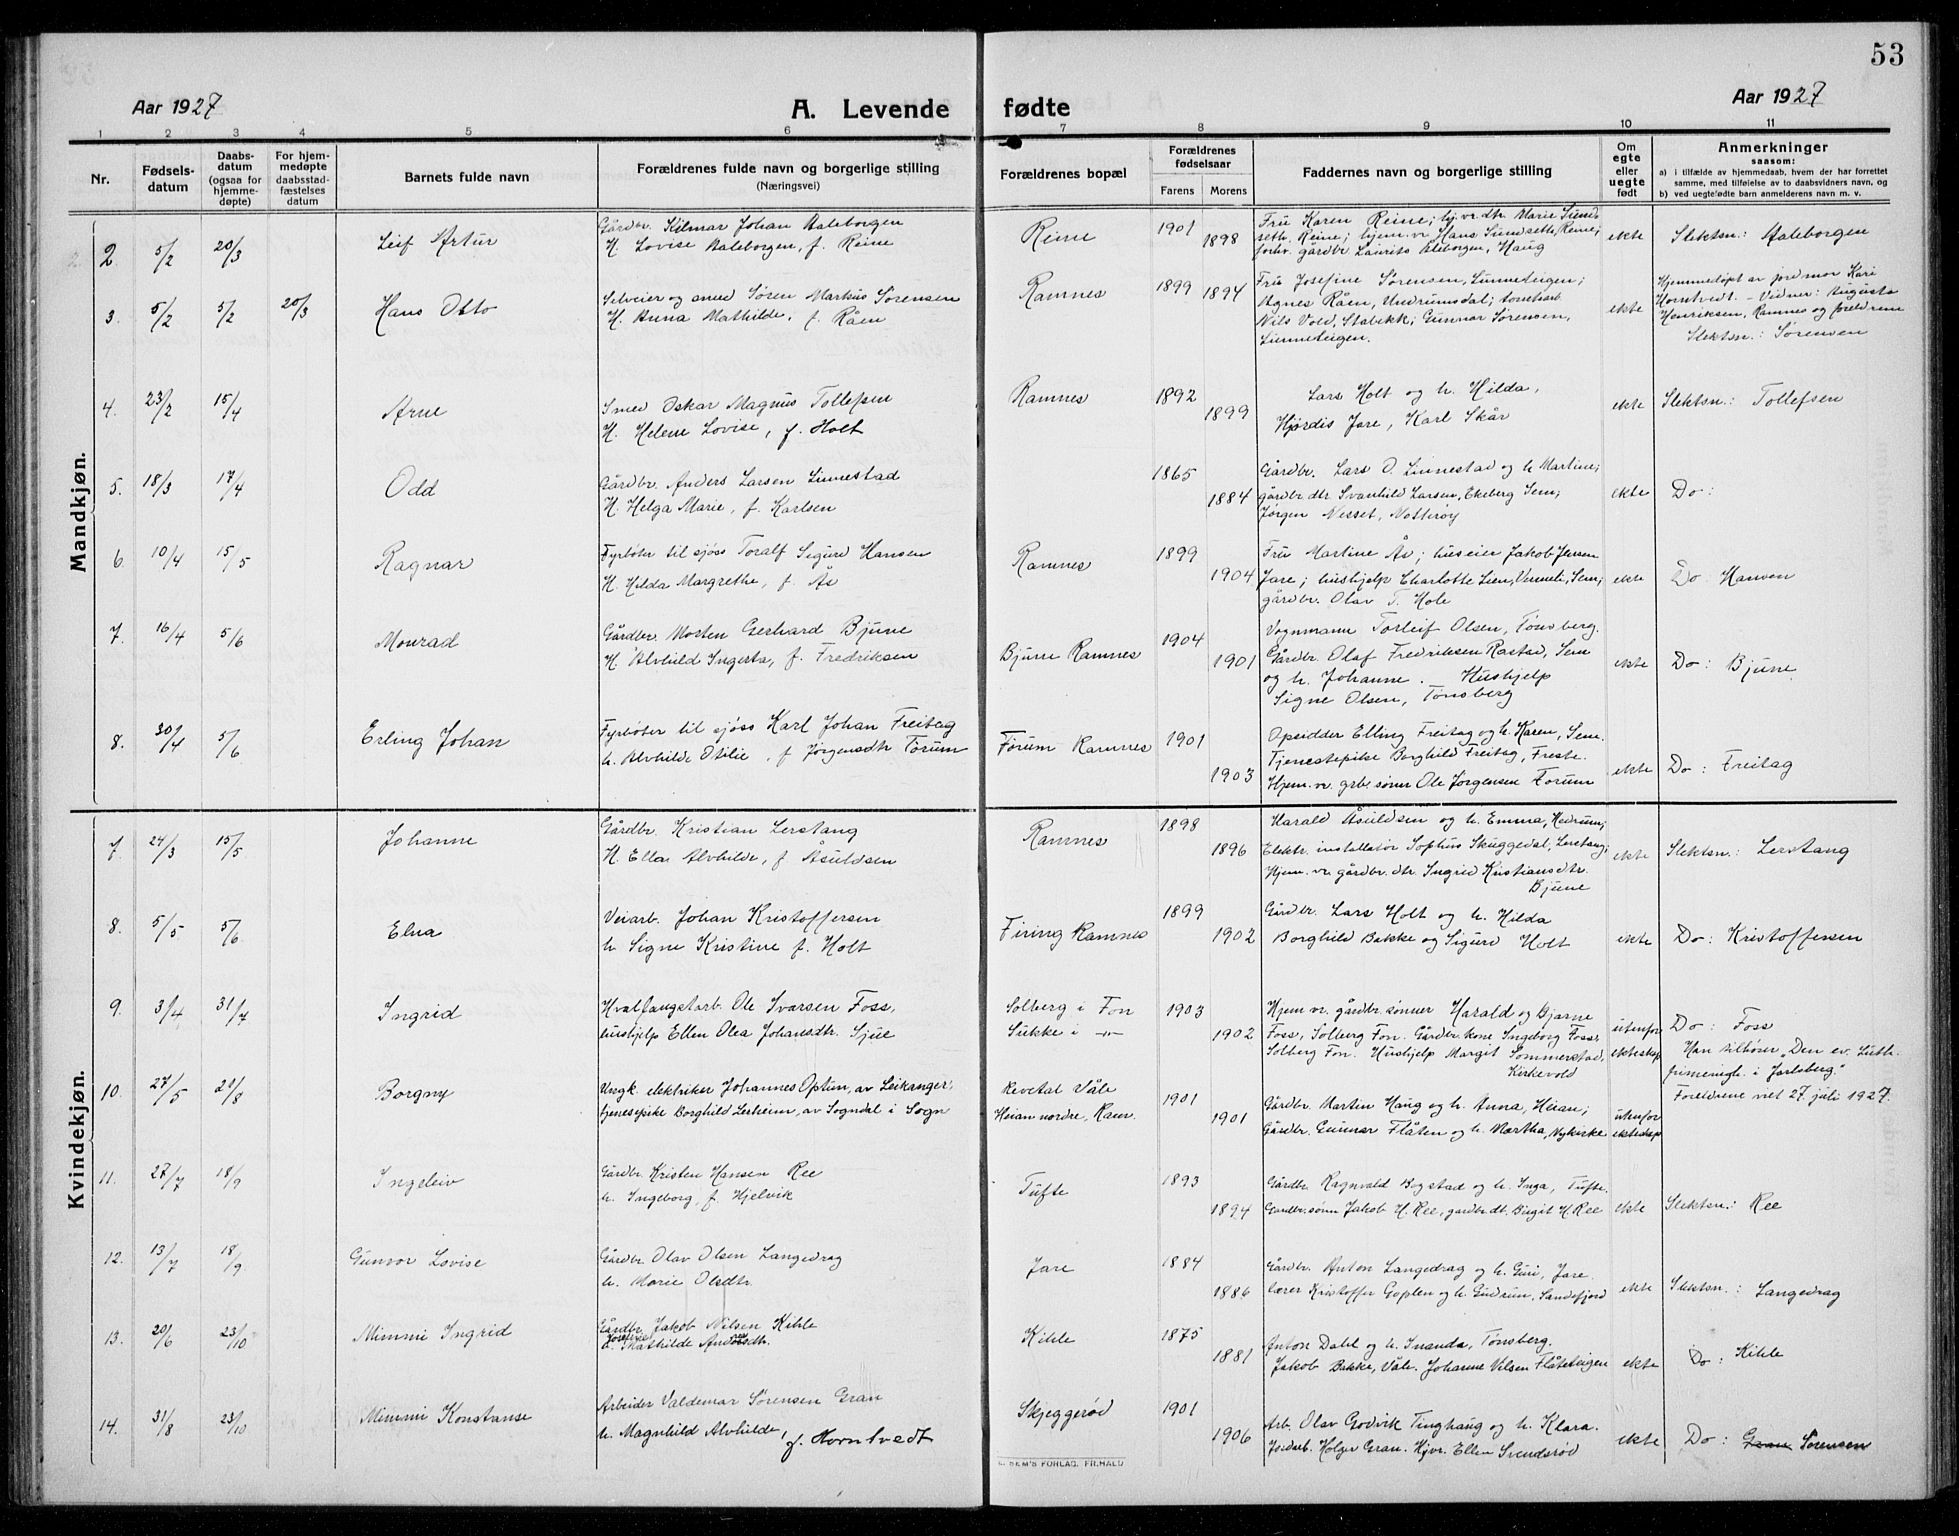 53
Aar 1927
A. Levende fødte
Aar 1927
1 2 3 4 5 6 7 8 9 10 11
Nr.
Fødsels-
datum
Daabs-
datum
(ogsaa for
hjemme-
døpte)
For hjem-
medøpte
daabsstad-
fæstelses
datum
Barnets fulde navn
Forældrenes fulde navn og borgerlige stilling
(Næringsvei)
Forældrenes bopæl
Forældrenes
fødselsaar
Farens Morens
Faddernes navn og borgerlige stilling
Om
egte
eller
uegte
født
Anmerkninger
saasom:
a) i tilfælde av hjemmedaab, hvem der har forrettet
samme, med tilføielse av to daabsvidners navn, og
b) ved uegtefødte barn anmelderens navn m. v.
Mandkjøn.
2. 5/2 20/3 Leif Artur
Gårdbr. Hilmar Johan Aaleborgen
H. Lovise Aaleborgen, f. Reine
Reine 1901 1898
Fru Karen Reine; hj. vr. dtr. Marie Sund-
seth, Reine; hjem. vr. Hans Sundseth, Reine;
forhv. gårdbr. Laurits Åleborgen, Haug
ekte Slektsn.: Aaleborgen
3. 5/2 5/2 20/3 Hans Otto
Selveier og smed Søren Markus Sørensen
H. Anna Mathilde, f. Råen
Ramnes 1899 1894
Fru Josefine Sørensen, Linnesteigen;
Agnes Råen, Undrumsdal;
Nils Vold, Stabekk; Gunnar Sørensen,
Linnesteigen.
ekte
Hjemmedøpt av jordmor Kari
Horntvedt. – Vidner: Augusta
Henriksen, Ramnes og foreldrene
Slektsn.: Sørensen
4. 23/2 15/4 Arne
Smed Oskar Magnus Tollefsen
H. Helene Lovise, f. Holt
Ramnes 1892 1899
Lars Holt og h. Hilda,
Hjørdis Jare, Karl Skår
ekte Slektsn.: Tollefsen
5. 18/3 17/4 Odd
Gårdbr. Anders Larsen Linnestad
H. Helga Marie, f. Karlsen
1865 1884
Gårdbr. Lars O. Linnestad og h Martine;
gårdbr. dtr. Svanhild Larsen, Ekeberg Sem;
Jørgen Nesset, Nøtterøy
ekte Do:
6. 10/4 15/5 Ragnar
Fyrbøter til sjøss Toralf Sigurd Hansen
H. Hilda Margrethe, f. Ås
Ramnes 1899 1904
Fru Martine Ås; huseier Jakob Jensen
Jare; hushjelp Charlotte Lien, Venneli, Sem;
gårdbr. Olav T. Hole
ekte Do: Hansen
7. 16/4 5/6 Monrad
Gårdbr. Morten Gerhard Bjune
H. Alvhild Ingerta, f. Fredriksen
Bjune Ramnes 1904 1901
Vognmann Torleif Olsen, Tønsberg.
Gårdbr. Olaf Fredriksen Rastad, Sem
og h. Johanne. Hushjelp
Signe Olsen, Tønsberg
ekte Do: Bjune
8. 30/4 5/6 Erling Johan
Fyrbøter til sjøss Karl Johan Freitag
h. Alvhilde Otilie, f Jørgensdtr Forum
Forum Ramnes 1901 1903
Opsidder Elling Freitag og h. Karen, Sem.
Tjenestepike Borghild Freitag, Freste.
Hjem. vr. grbr. sønn Ole Jørgensen Forum
ekte Do: Freitag
Kvindekjøn.
7. 24/3 15/5 Johanne
Gårdbr. Kristian Lerstang
H. Ella Alvhilde, f. Åsuldsen
Ramnes 1898 1896
Harald Åsuldsen og h. Emma, Hedrum;
Elektr. installatør Sophus Skuggedal, Lerstang;
Hjem. vr. gårdbr. dtr. Ingrid Kristiansdtr.
Bjune
ekte Slektsn.: Lerstang
8. 5/5 5/6 Elna
Veiarb. Johan Kristoffersen
h Signe Kristine f. Holt
Firing Ramnes 1899 1902
Gårdbr. Lars Holt og h. Hilda
Borghild Bakke og Sigurd Holt
ekte Do: Kristoffersen
9. 3/4 31/7 Ingrid
Hvalfangstarb. Ole Ivarsen Foss,
hushjelp Ellen Olea Johansdtr. Sjue
Solberg i Fon
Sukke i -"-
1903 1902
Hjem vr. gårdbr. sønner Harald og Bjarne
Foss, Solberg Fon. Gårdbr. kone Ingeborg Foss,
Solberg Fon. Hushjelp Margit Sommerstad,
Kirkevold
utenfor
ekteskap
Do: Foss
Han tilhører "Den ev. Luth.
frimenigh. i Jarlsberg."
10. 27/5 21/8 Borgny
Ungk. elektriker Johannes Optun, av Leikanger;
tjenestpike Borghild Lerheim, av Sogndal i Sogn
Revetal Våle
Heian nordre, Ram.
1901 1901
Gårdbr. Martin Haug og h. Anna, Heian;
Gårdbr. Gunnar Flåten og h. Martha, Nykirke
utenfor
ekteskap
Foreldrene viet 27. juli 1927.
11. 27/7 18/9 Ingeleiv
Gårdbr. Kristen Hansen Ree
h. Ingeborg, f Hjelvik
Tufte 1893 1894
Gårdbr. Ragnvald Bogstad og h. Inga, Tufte.
Gardbr. sønn Jakob H. Ree, gardbr. dt. Birgit H Ree
ekte Slektsn.: Ree
12. 13/7 18/9 Gunvor Lovise
Gårdbr. Olav Olsen Langedrag
h. Marie Olsdtr.
Jare 1884 1886
Gårdbr. Anton Langedrag og h. Guri, Jare.
lærer Kristoffer Goplen og h. Gudrun, Sandefjord
ekte Slektsn.: Langedrag
13. 20/6 23/10 Mimmi Ingrid
Gårdbr. Jakob Nilsen Kihle
h. Mathilde
Kihle 1875 1881
Anton Dahl og h. Inanda, Tønsberg.
Jakob Bakke, Våle. Johanne Nilsen Flåteteigen
ekte Do: Kihle
14. 31/8 23/10 Mimmi Konstanse
Arbeider Valdemar Sørensen Gran
h. Magnhild Alvhilde, f. Horntvedt
Skjeggerød 1901 1906
Arb. Olav Godvik Tinghaug og h. Klara.
Jordarb. Holger Gran. Hjvr. Ellen Svendsrød
ekte Do: Gran Sørensen
SEM'S FORLAG, FR.HALD